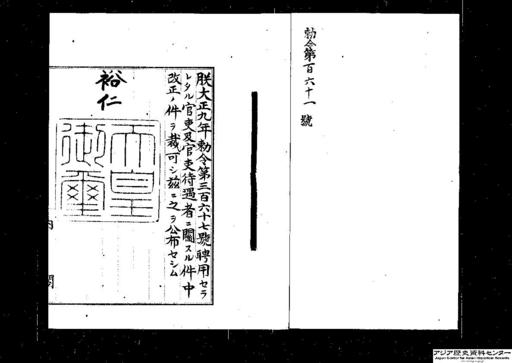 勅令第百六十一號
朕大正九年勅令第三百六十七號聘用セラ
レタル官吏及官吏待遇者ニ關スル件中
改正ノ件ヲ裁可シ茲ニ之ヲ公布セシム
裕仁
天皇
御璽
内閣
アジア歴史資料センター
Japan Center for Asian Historical Records